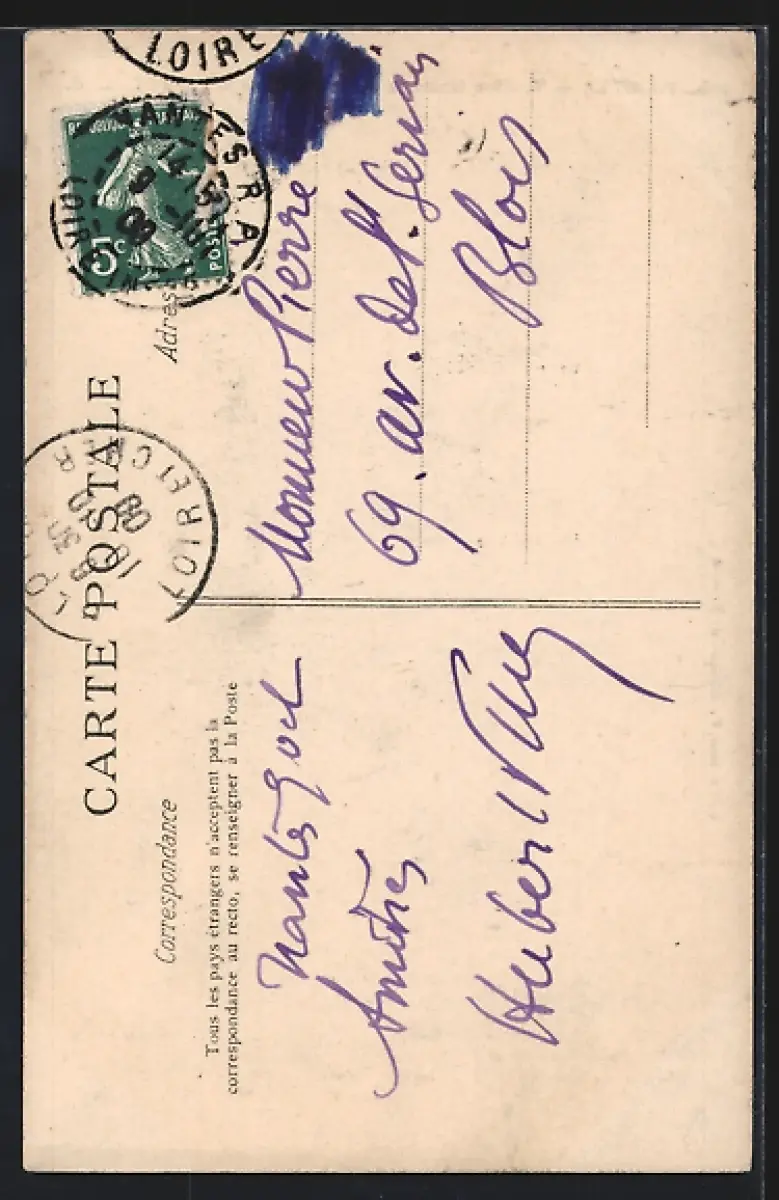 CARTE POSTALE
Correspondance
Tous les pays étrangers n'acceptent pas la
correspondance au recto, se renseigner à la Poste
Nantes 9 oct
Amitiés
Hubert
Adres
Monsieur Pierre
69. av. de St. Gervais
Blois
5c
POSTES
NANTES R.A.
LOIRE INF
9
08
LOIR ET CHER
8 35
10
08
LOIRE